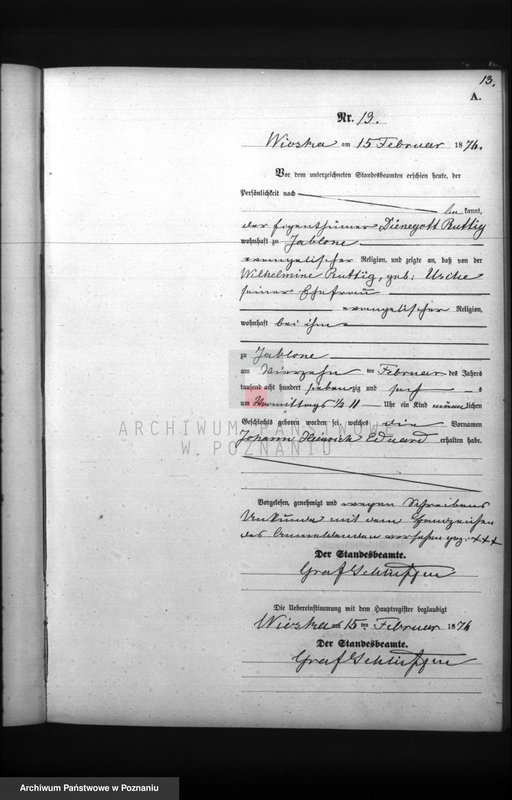 13.
A.
Nr. 13.
Wioska am 15 Februar 1876.
Vor dem unterzeichneten Standesbeamten erschien heute, der
Persönlichkeit nach
bekannt,
der Eigenthümer Dünegott Ruttig
wohnhaft zu Jablone
evangelischer Religion, und zeigte an, daß von der
Wilhelmine Ruttig, geb:
seiner Ehefrau
evangelischer Religion,
wohnhaft bei ihm
zu Jablone
am Vierzehn ten Februar des Jahrs
tausend acht hundert siebenzig und sechs
um Vormittags ½ 11 Uhr ein Kind männlichen
Geschlechts geboren worden sei, welches die Vornamen
Johann Heinrich Eduard erhalten habe.
Vorgelesen, genehmigt und wegen Schreibens
Unkunde mit dem Handzeichen
des Anmeldenden versehen gez: +++
Der Standesbeamte.
Graf Schlieffen
Die Uebereinstimmung mit dem Hauptregister beglaubigt
Wioska am 15 ten Februar 1876
Der Standesbeamte.
Graf Schlieffen
ARCHIWUM PAŃSTWOWE
W POZNANIU
Archiwum Państwowe w Poznaniu